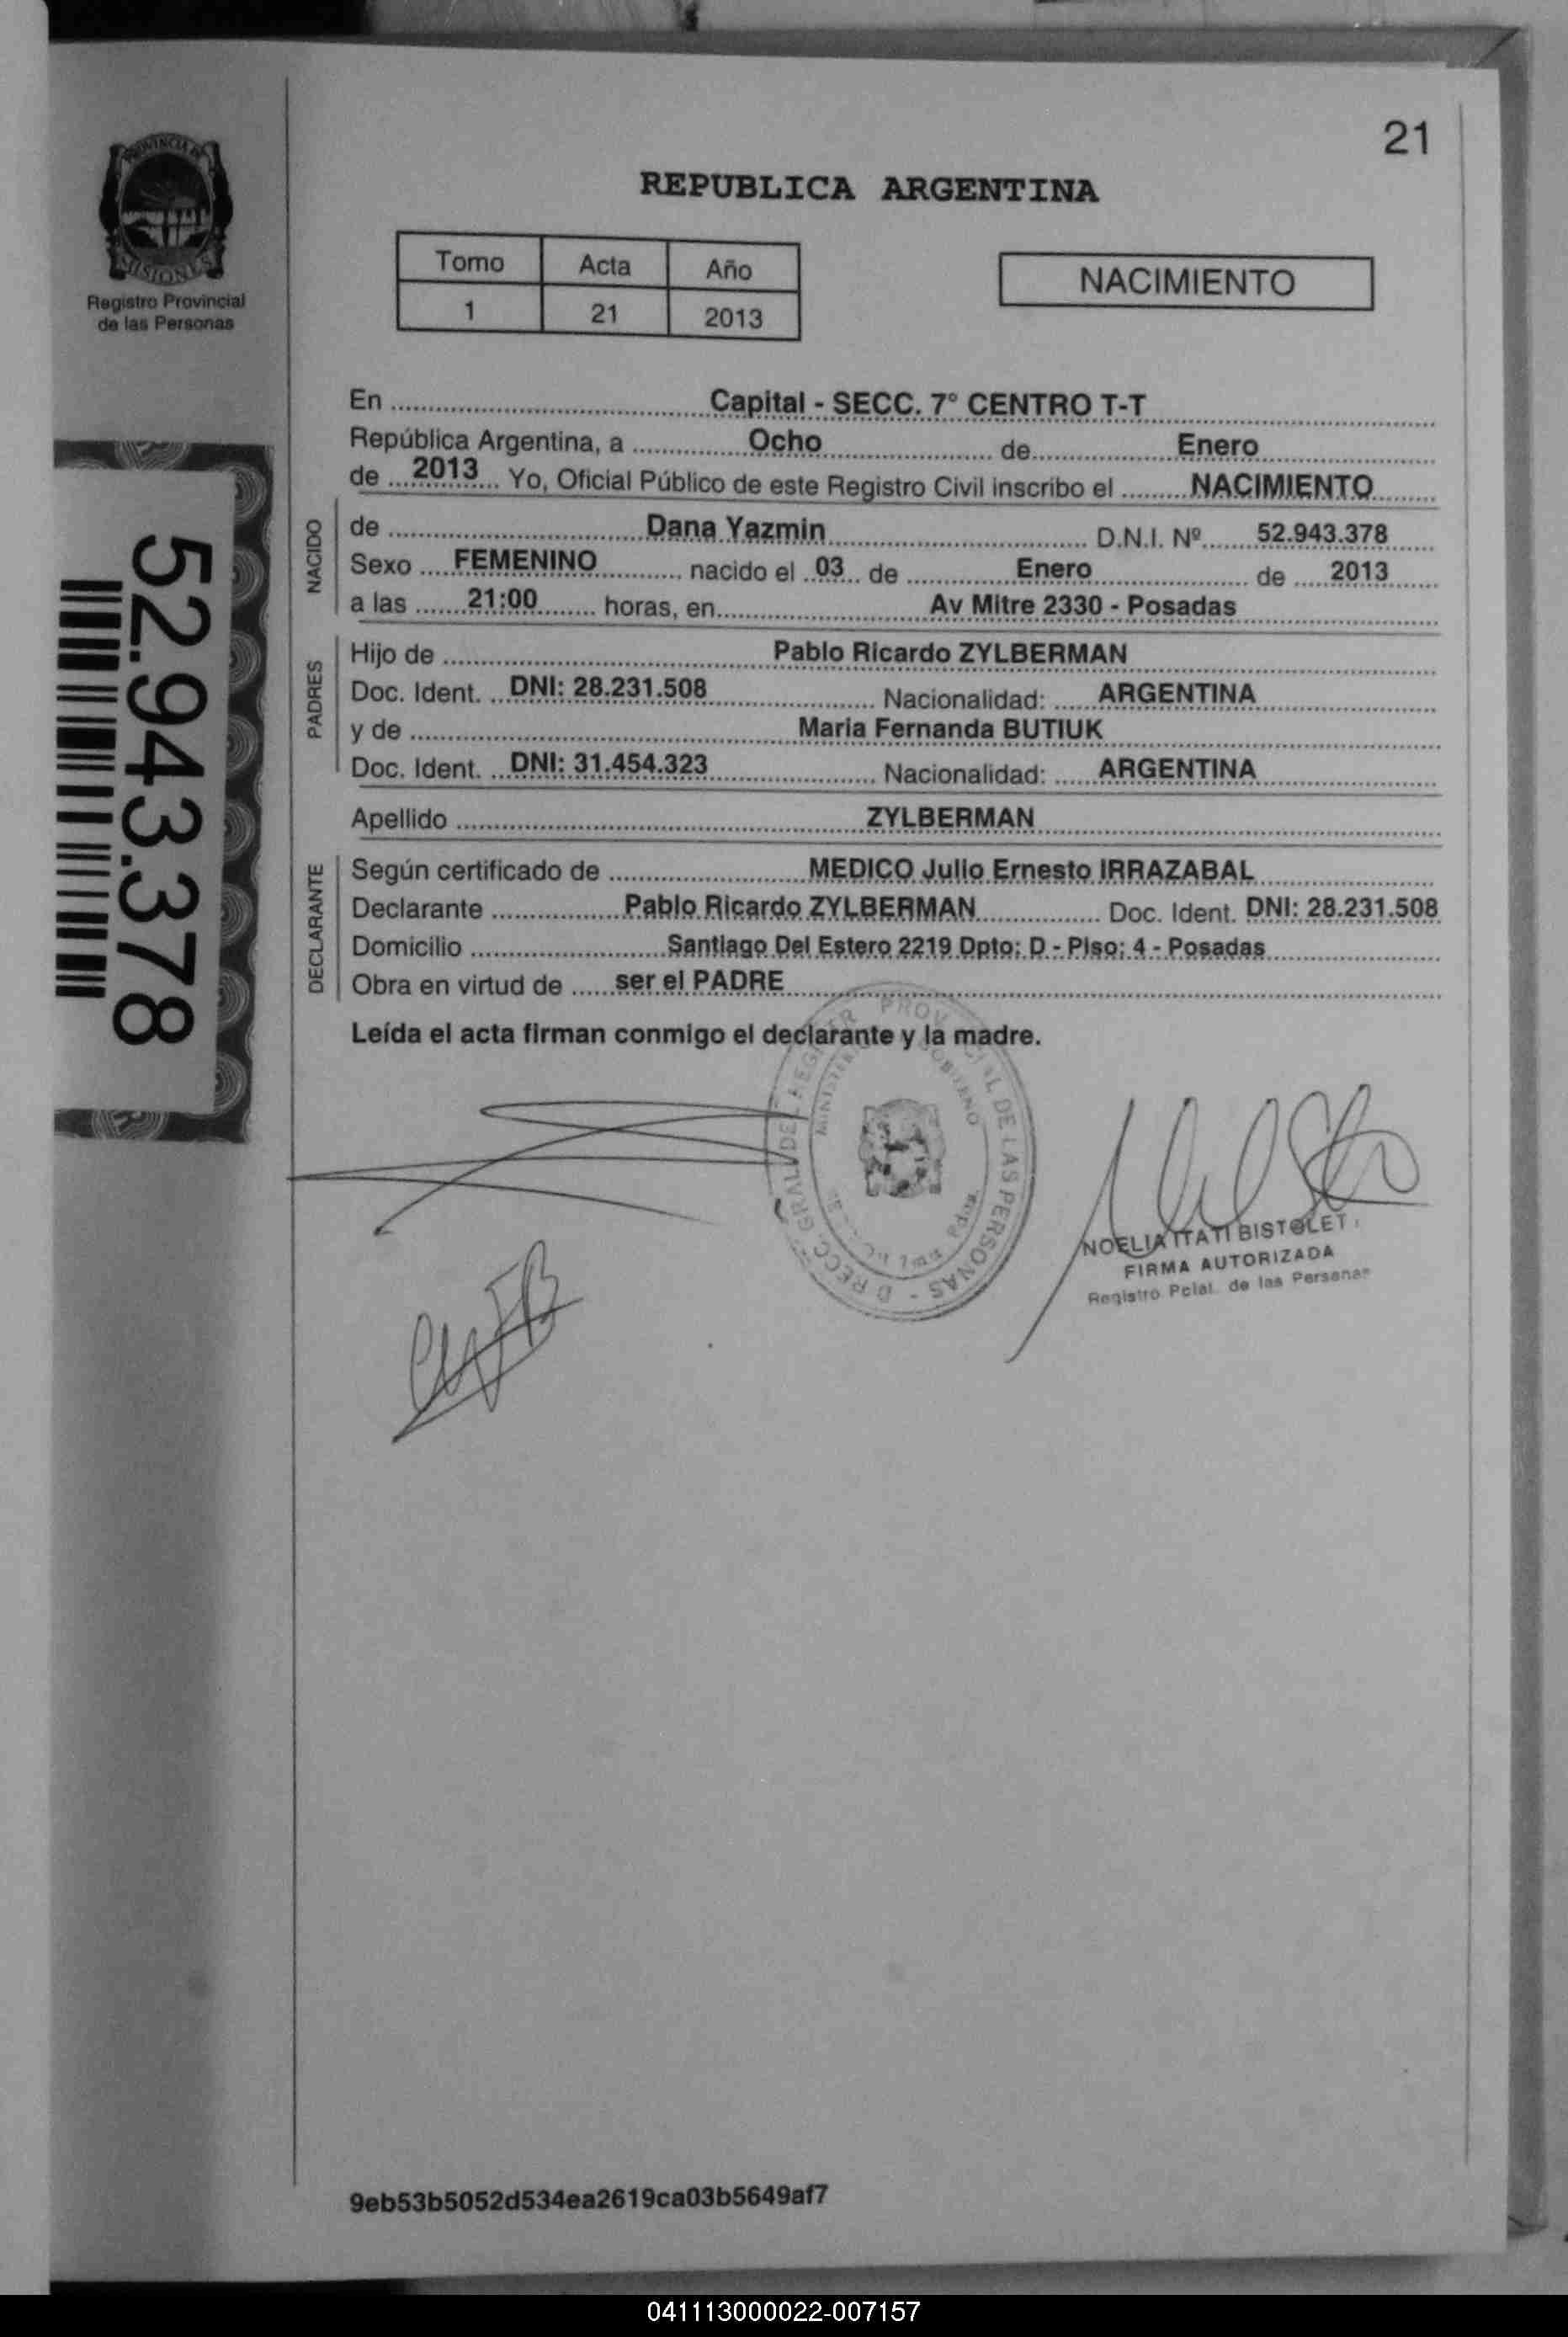 21
PROVINCIA DE
MISIONES
Registro Provincial
de las Personas
REPUBLICA ARGENTINA
Tomo Acta Año
1 21 2013
NACIMIENTO
En Capital - SECC. 7° CENTRO T-T
República Argentina, a Ocho de Enero
de 2013 Yo, Oficial Público de este Registro Civil inscribo el NACIMIENTO
NACIDO
de Dana Yazmin D.N.I. Nº 52.943.378
Sexo FEMENINO nacido el 03 de Enero de 2013
a las 21:00 horas, en Av Mitre 2330 - Posadas
PADRES
Hijo de Pablo Ricardo ZYLBERMAN
Doc. Ident. DNI: 28.231.508 Nacionalidad: ARGENTINA
y de Maria Fernanda BUTIUK
Doc. Ident. DNI: 31.454.323 Nacionalidad: ARGENTINA
Apellido ZYLBERMAN
DECLARANTE
Según certificado de MEDICO Julio Ernesto IRRAZABAL
Declarante Pablo Ricardo ZYLBERMAN Doc. Ident. DNI: 28.231.508
Domicilio Santiago Del Estero 2219 Dpto: D - Piso: 4 - Posadas
Obra en virtud de ser el PADRE
Leída el acta firman conmigo el declarante y la madre.
52.943.378
PROVINCIAL DE LAS PERSONAS
NOELIA ITATI BISTOLET
FIRMA AUTORIZADA
Registro Pcial. de las Personas
9eb53b5052d534ea2619ca03b5649af7
041113000022-007157